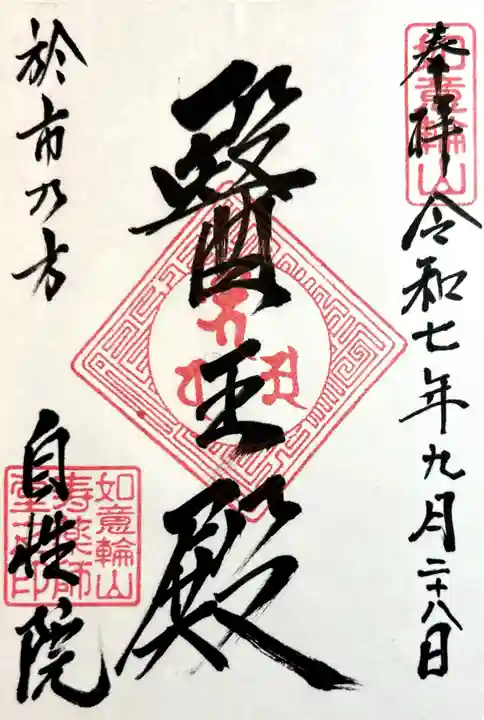 奉拝 令和七年九月二十八日
如意輪山
醫王殿
於市乃方
自性院
如意輪山
寿薬師